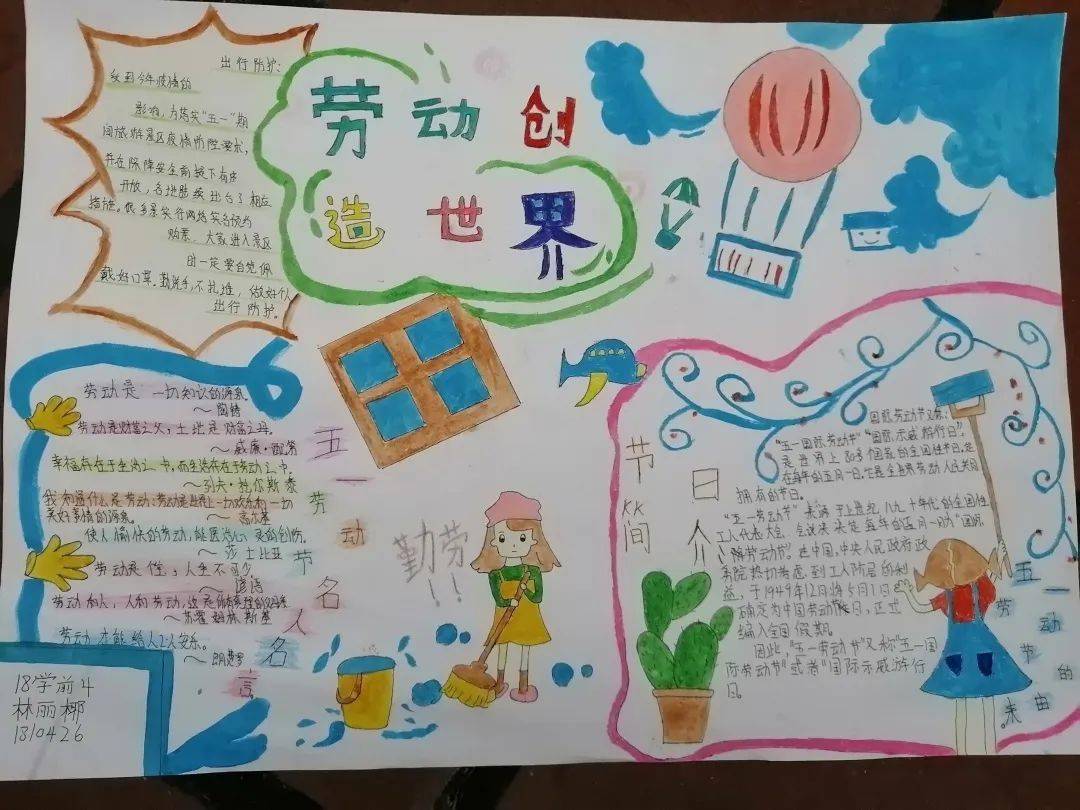 劳动创
造世界
出行防护:
受到今年疫情的
影响,为落实“五一”期
间旅游景区疫情防控要求,
并在保障安全前提下有序
开放,各地陆续出台了相应
措施。很多景实行网络实名预约
购票,大家进入景区
时一定要自觉佩
戴好口罩。勤洗手,不扎堆,做好个人
出行防护。
劳动是一切知识的源泉
～陶铸
劳动是财富之父,土地是财富之母。
～威廉·配第
幸福存在于生活之中,而生活存在于劳动之中。
～列夫·托尔斯泰
我知道什么是劳动:劳动是世界上一切欢乐和一切
美好事情的源泉。 ～高尔基
使人愉快的劳动,能医治心灵的创伤。
～莎士比亚
劳动是
人生不可少
劳动
～苏霍姆林斯基
劳动才能给人以安乐。
五一劳动节名人名言
勤劳!!
18学前4
林丽椰
1310426
节日
KK
间介
国际劳动节又称:
“五一国际劳动节”“国际示威游行日”,
是世界上80多个国家的全国性节日。定
在每年的五月一日。它是全世界劳动人民共同
拥有的节日。
“五一劳动节”来源于上世纪八九十年代的全国性
工人代表大会,会议决定每年的五月一日为“国际
劳动节。在中国,中央人民政府政
务院
到工人阶层的利
益,于1949年12月将5月1日
确定为中国劳动节日,正式
编入全国假期。
因此“五一劳动节”又称“五一国
际劳动节”或者“国际示威游行
日。
五一劳动节的来由。